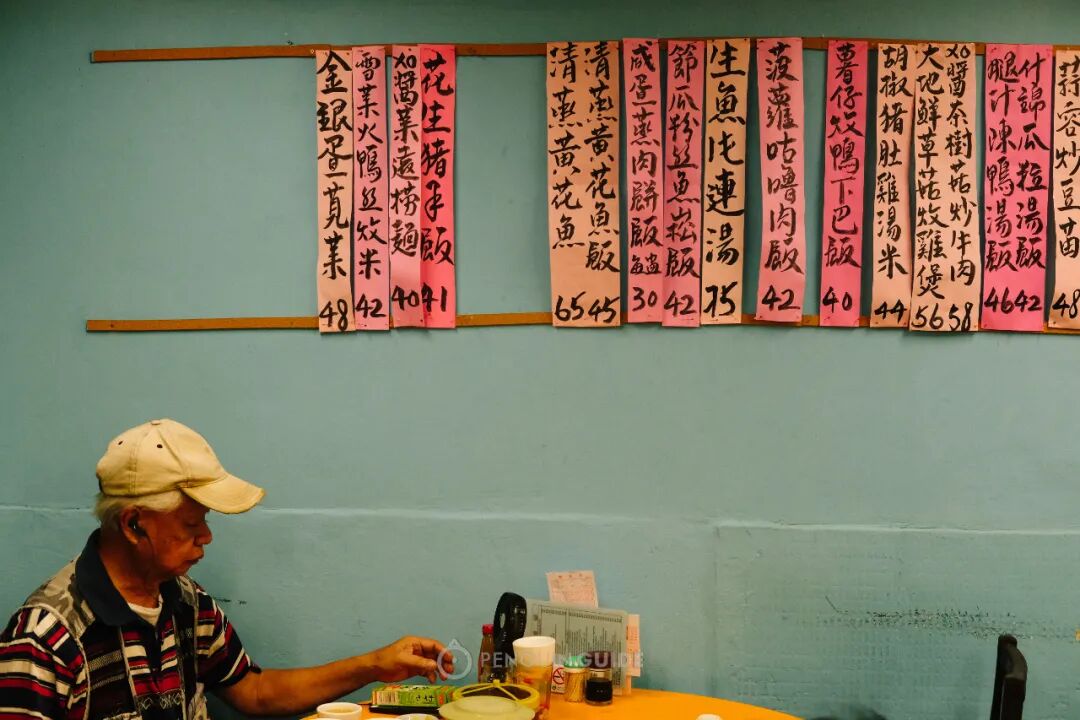 金銀蛋莧菜 48
雪菜火鴨絲炆米 42
XO醬菜遠撈麵 40
花生猪手飯 41
清蒸黃花魚 65
清蒸黃花魚飯 45
咸蛋蒸肉餅飯 30
節瓜粉絲魚崧飯 42
生魚𠮶連湯 75
菠蘿咕嚕肉飯 42
薯仔炆鴨下巴飯 40
胡椒猪肚雞湯米 44
大地鮮草菇炆雞煲 56
XO醬茶樹菇炒牛肉 58
腿汁陳鴨湯飯 46
什錦瓜粒湯飯 42
蒜容炒豆苗 48